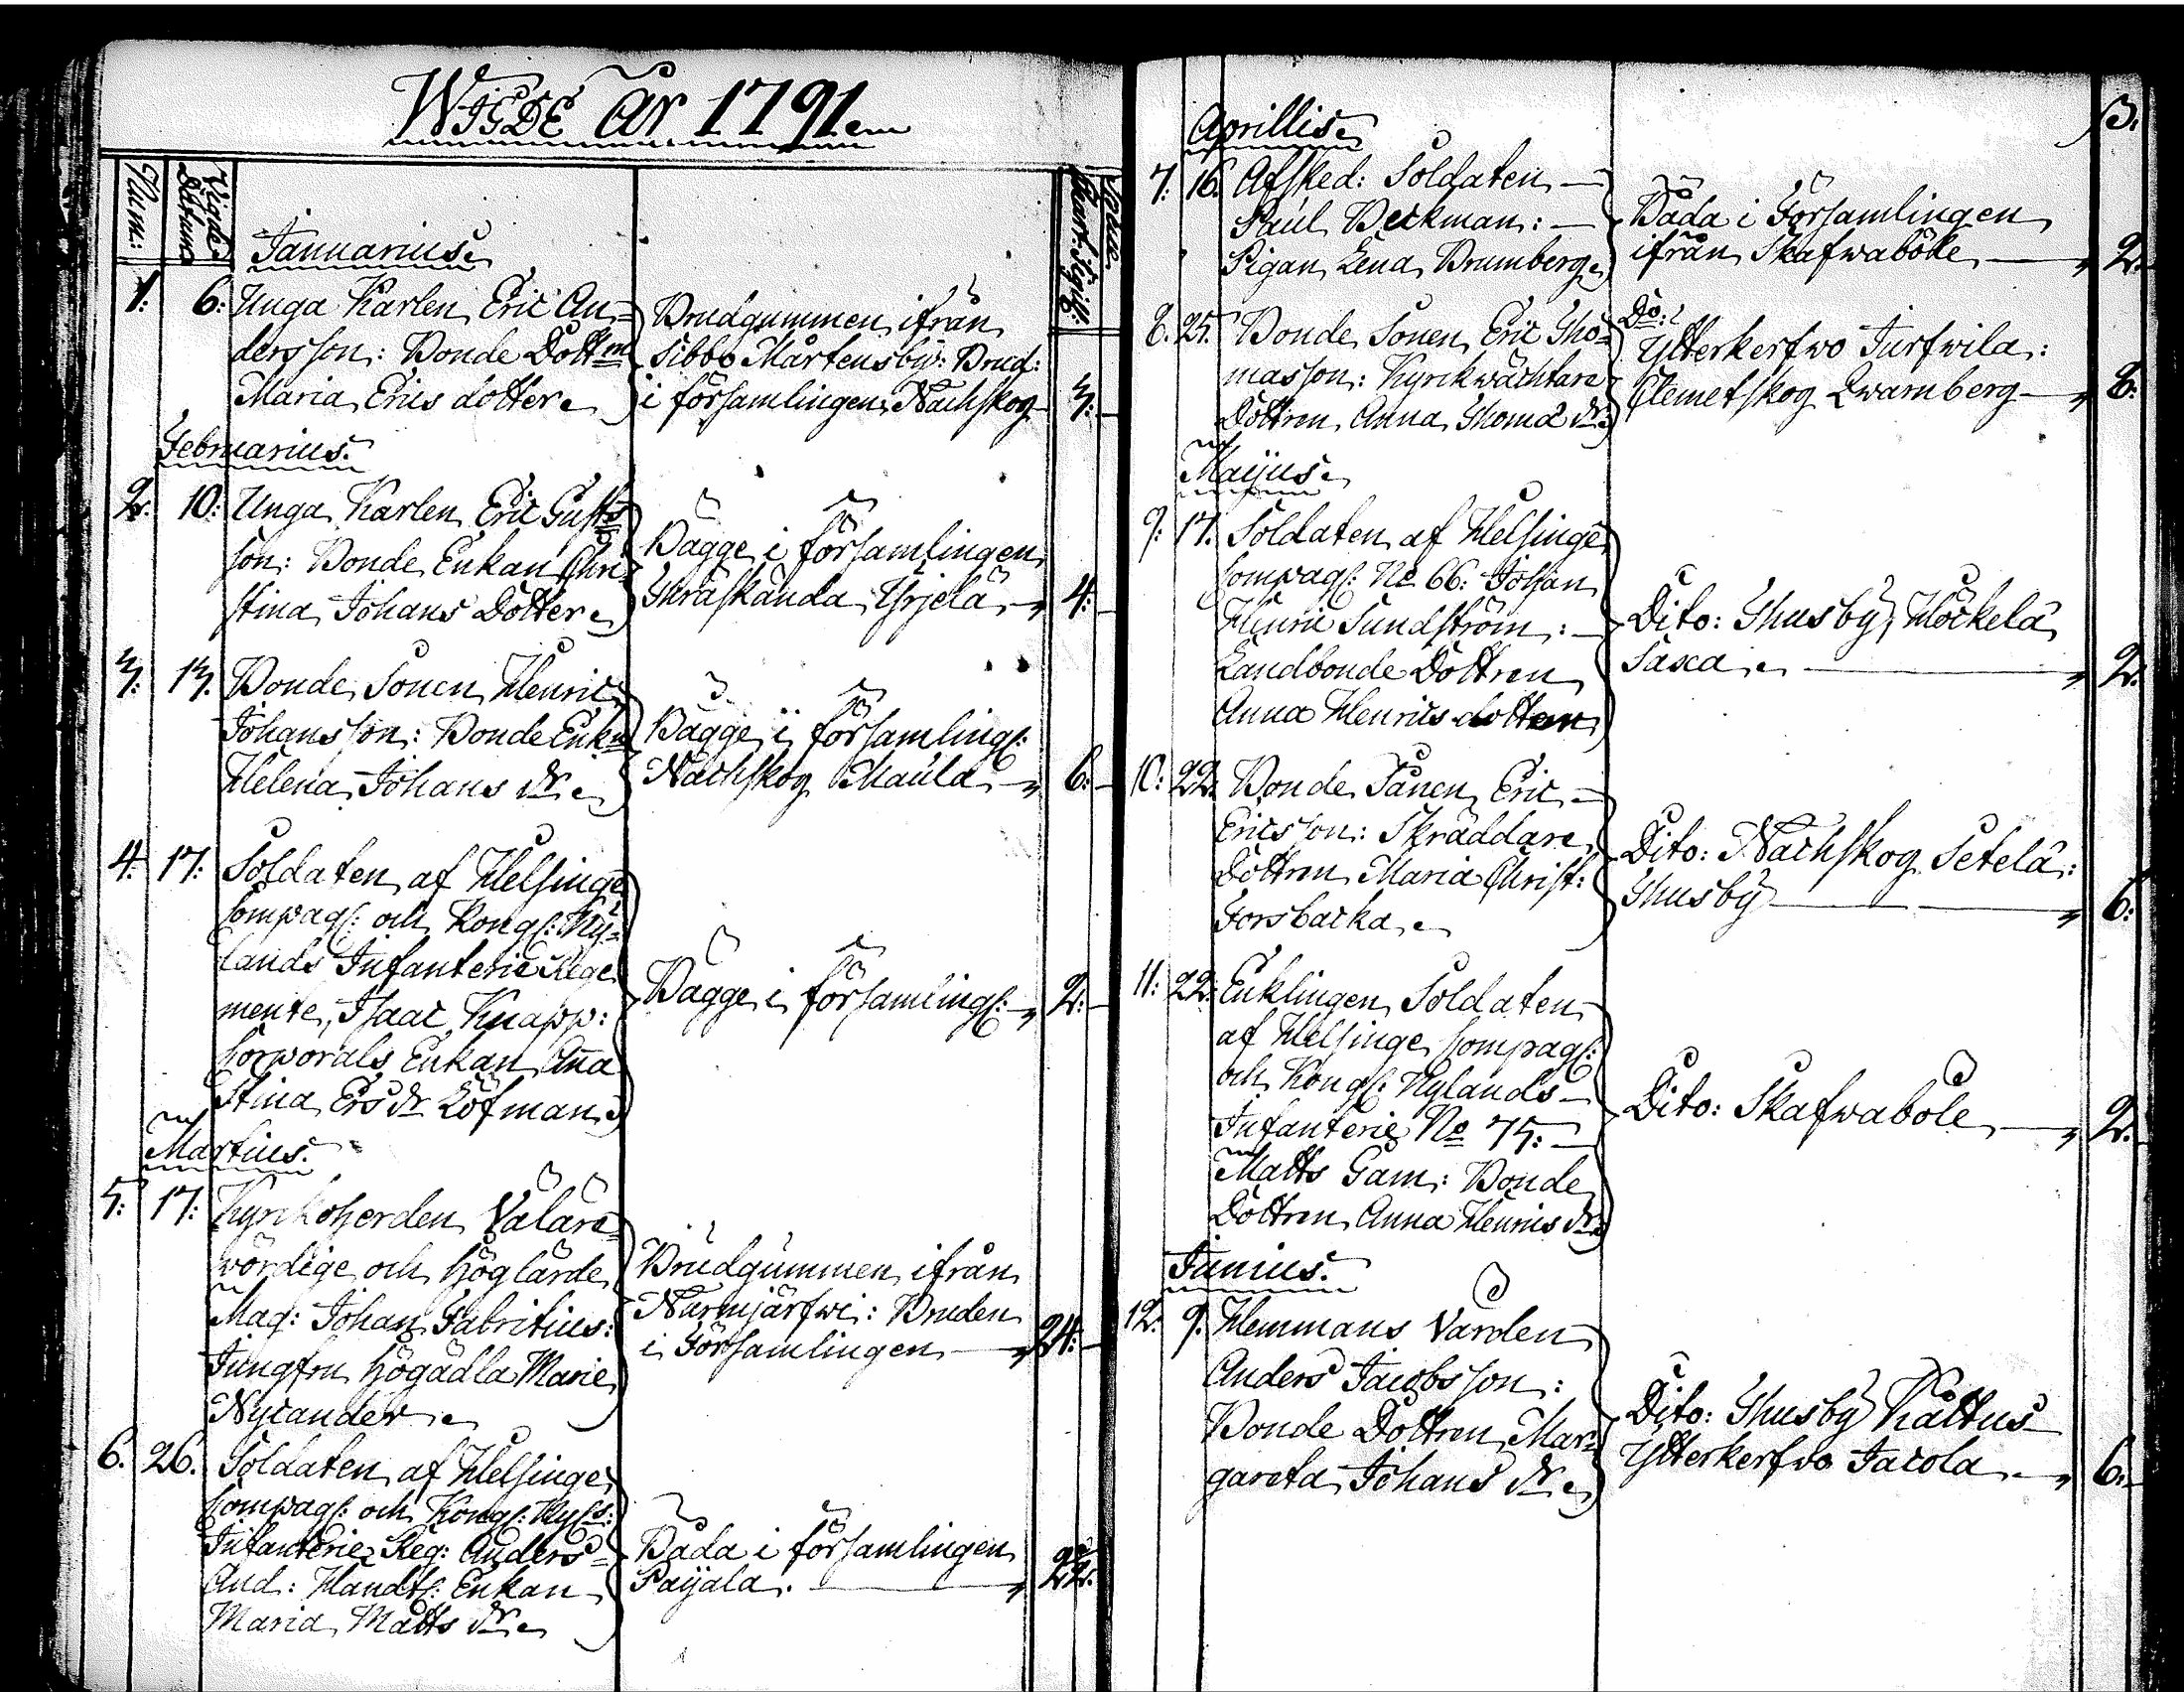 Wigde år 1791
Num:
Vigde Datum
Januarius
1: 6: Unga Karlen Eric An=
dersson: Bonde Dottrn
Maria Erics dotter
Brudgummen ifrån
Sibbo Mårtensby: Brud:
i församlingen Nackskog 3:
Februarius.
2. 10: Unga Karlen Eric Gustfs
son: Bonde Enkan Chri
stina Johans Dotter
Bägge i församlingen
Skräskända Yrjelä 4:
3: 13. Bonde Sonen Henric
Johansson: Bonde Enkn
Helena Johans dr
Bägge i församling:
Nackskog Maula 6:
4: 17: Soldaten af Helsinge
Compag: och Kongl: Ny=
lands Infanterie Rege
mente, Isaac Knapp:
Corporals Enkan Aña
Stina Ers dr Löfman
Bägge i församling: 2:
Martius.
5: 17: Kyrkoherden Väläre=
wördige och Höglärde
Mag: Johan Fabritius:
Jungfru Högädla Marie
Nycander
Brudgummen ifrån
Nurmjärfwi: Bruden
i Församlingen 24:
6. 26. Soldaten af Helsinge
Compag: och Kongl: Nyls:
Infanterie Reg: Anders
And: Handtl: Enkan
Maria Matts dr
Båda i församlingen
Paijala. 22.
3.
Aprillis
7: 16. Afsked: Soldaten
Paul Beckman:
Pigan Lena Brumberg
Båda i Församlingen
ifrån Skafwaböle 2.
8. 25. Bonde Sonen Eric Tho=
masson: Kyrkwächtare
Dottren Anna Thoma dr
Do:
Ytterkerfwo Jurfwila:
Clemetskog Qwarnberg 8:
Maijus
9: 17. Soldaten af Helsinge
Compag: No 66: Johan
Henric Sundström:
Landbonde Dottren
Anna Henrics dotter
Dito: Thusby, Höckelä
Saxa 2.
10: 22. Bonde Sånen Eric
Ericsson: Skräddare
Dottren Maria Christ:
Forsbacka
Dito: Nackskog Setelä:
Thusby 6:
11: 22: Enklingen Soldaten
af Helsinge Compag:
och Kongl: Nylands
Infanterie No 75:
Matts Gam: Bonde
Dottren Anna Henrics dr
Dito: Skafwabole 2.
Junius.
12. 9. Hemmans Vården
Anders Jacobsson:
Bonde Dottren Mar=
gareta Johans dr
Dito: Thusby Kättus
Ytterkerfwo Jacola 6.